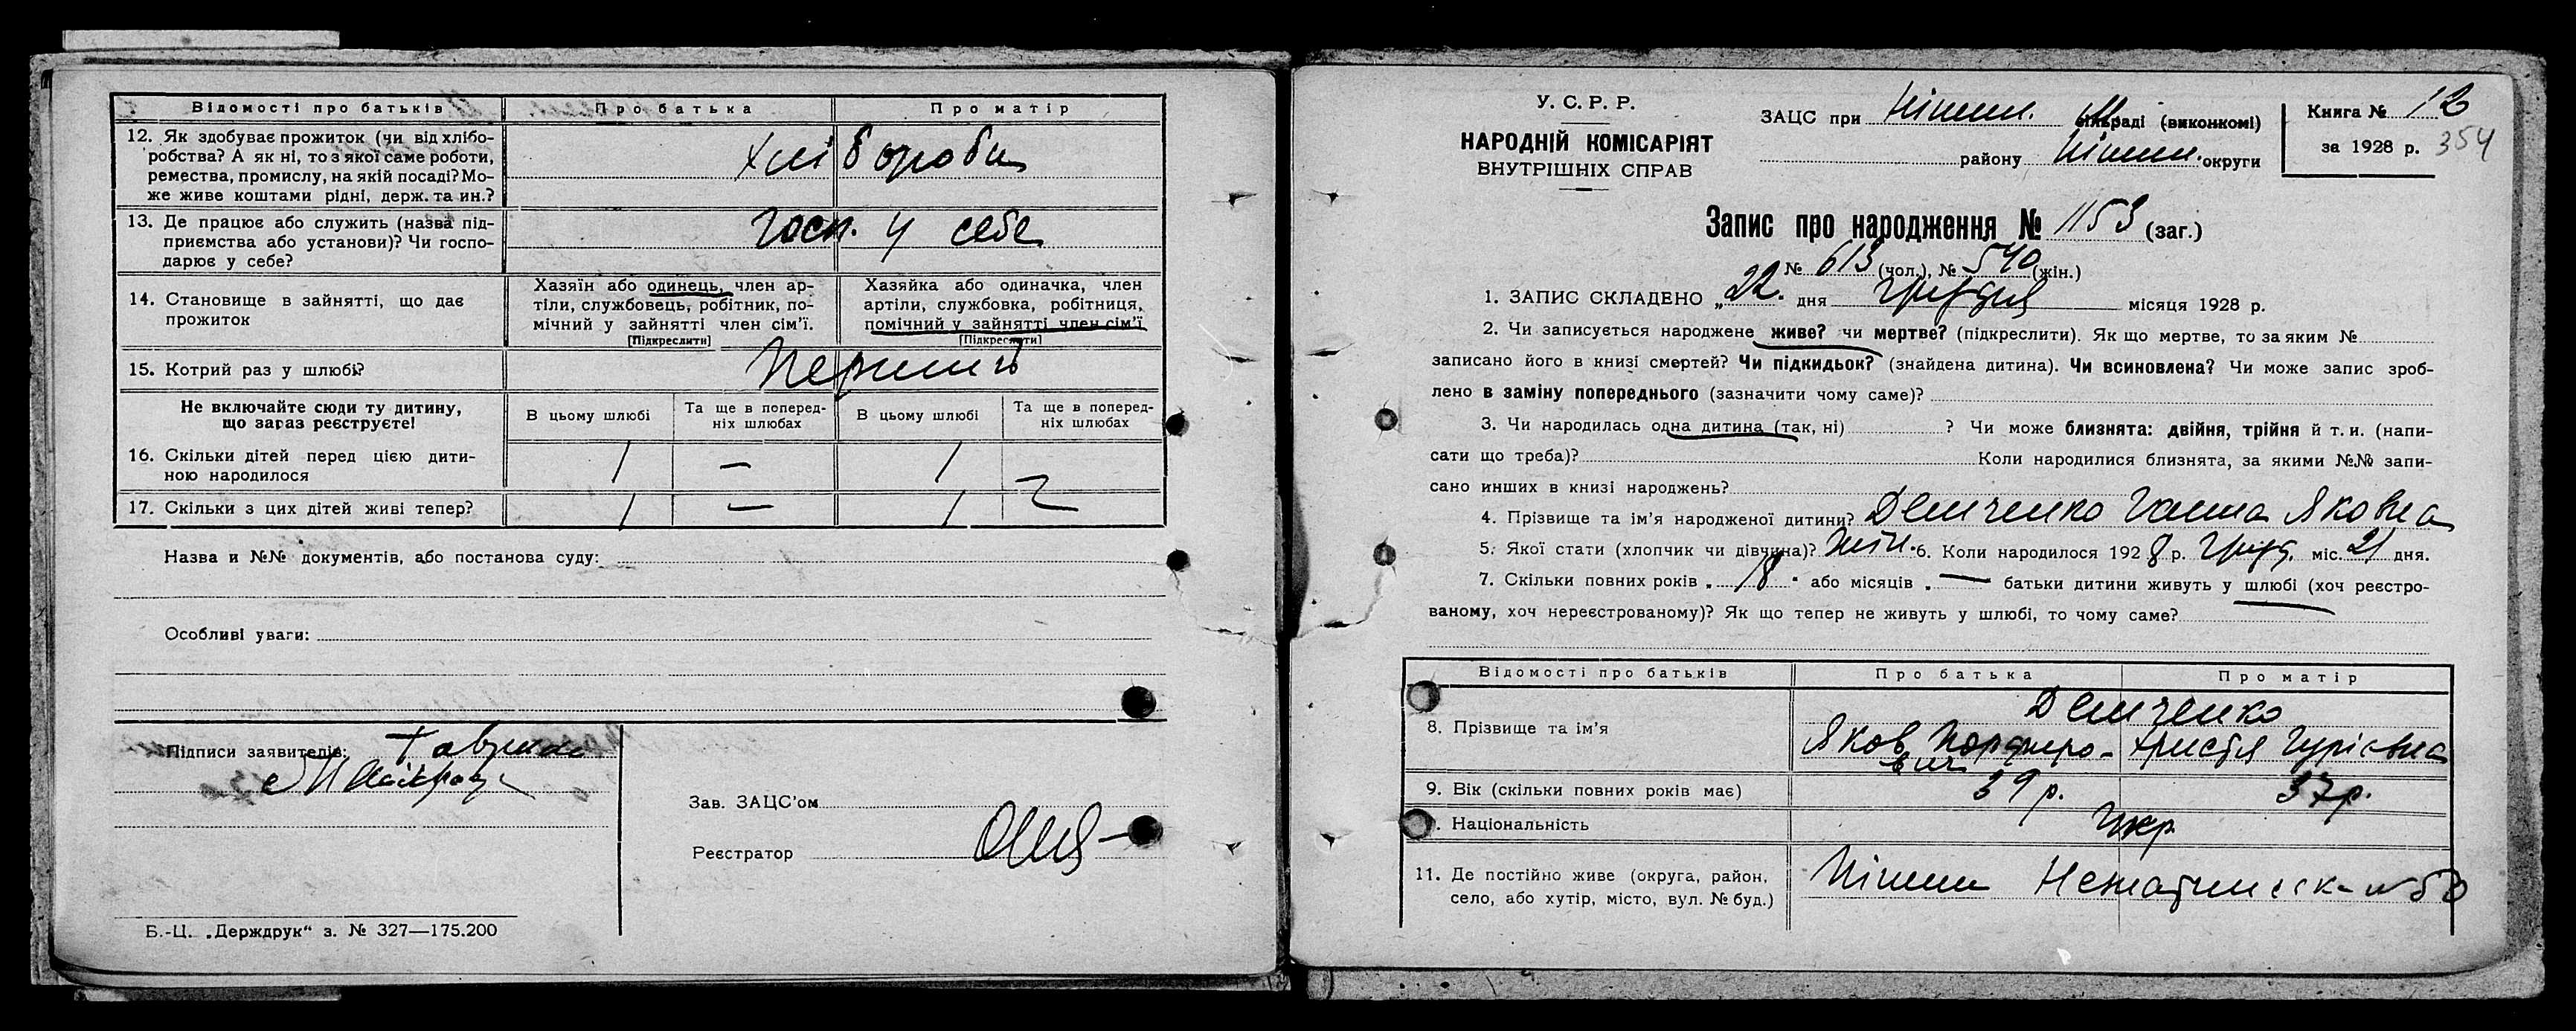 Відомості про батьків Про батька Про матір
12. Як здобуває прожиток (чи від хлібо-
робства? А як ні, то з якої саме роботи,
ремества, промислу, на якій посаді? Мо-
же живе коштами рідні, держ. та ин.?
хлібороби
13. Де працює або служить (назва під-
приємства або установи)? Чи госпо-
дарює у себе?
госп. у себе
14. Становище в зайнятті, що дає
прожиток
Хазяїн або одинець, член ар-
тіли, службовець, робітник, по-
мічний у зайнятті член сім'ї.
[Підкреслити]
Хазяйка або одиначка, член
артіли, службовка, робітниця,
помічний у зайнятті член сім'ї
[Підкреслити]
15. Котрий раз у шлюбі?
Перший
Не включайте сюди ту дитину,
що зараз реєструєте!
В цьому шлюбі Та ще в поперед-
ніх шлюбах В цьому шлюбі Та ще в поперед-
ніх шлюбах
16. Скільки дітей перед цією дити-
ною народилося
1 — 1
17. Скільки з цих дітей живі тепер?
1 — 1
Назва и №№ документів, або постанова суду:
Особливі уваги:
Підписи заявителів:
Зав. ЗАЦС'ом
Реєстратор
Б.-Ц. „Держдрук“ з. № 327—175.200
У. С. Р. Р.
НАРОДНІЙ КОМІСАРІЯТ
ВНУТРІШНІХ СПРАВ
ЗАЦС при Ніжин. раді (виконкомі)
району Ніжин. округи
Книга № 12
за 1928 р. 354
Запис про народження № 1153 (заг.)
№ 613 (чол.), № 540 (жін.)
1. ЗАПИС СКЛАДЕНО „22. дня Грудня місяця 1928 р.
2. Чи записується народжене живе? чи мертве? (підкреслити). Як що мертве, то за яким №
записано його в книзі смертей? Чи підкидьок? (знайдена дитина). Чи всиновлена? Чи може запис зроб-
лено в заміну попереднього (зазначити чому саме)?
3. Чи народилась одна дитина (так, ні) ? Чи може близнята: двійня, трійня й т. и. (напи-
сати що треба)? Коли народилися близнята, за якими №№ запи-
сано инших в книзі народжень?
4. Прізвище та ім'я народженої дитини? Демченко Ганна Яковна
5. Якої стати (хлопчик чи дівчина)? жін. 6. Коли народилося 1928 р. Груд. міс. 21 дня.
7. Скільки повних років „ 18 “ або місяців „ — батьки дитини живуть у шлюбі (хоч реєстро-
ваному, хоч нереєстрованому)? Як що тепер не живуть у шлюбі, то чому саме?
Відомості про батьків Про батька Про матір
8. Прізвище та ім'я
Демченко
Яков Порфиро-
вич
Христя Гурівна
9. Вік (скільки повних років має) 39 р. 37 р.
. Національність Укр.
11. Де постійно живе (округа, район,
село, або хутір, місто, вул. № буд.)
Ніжин